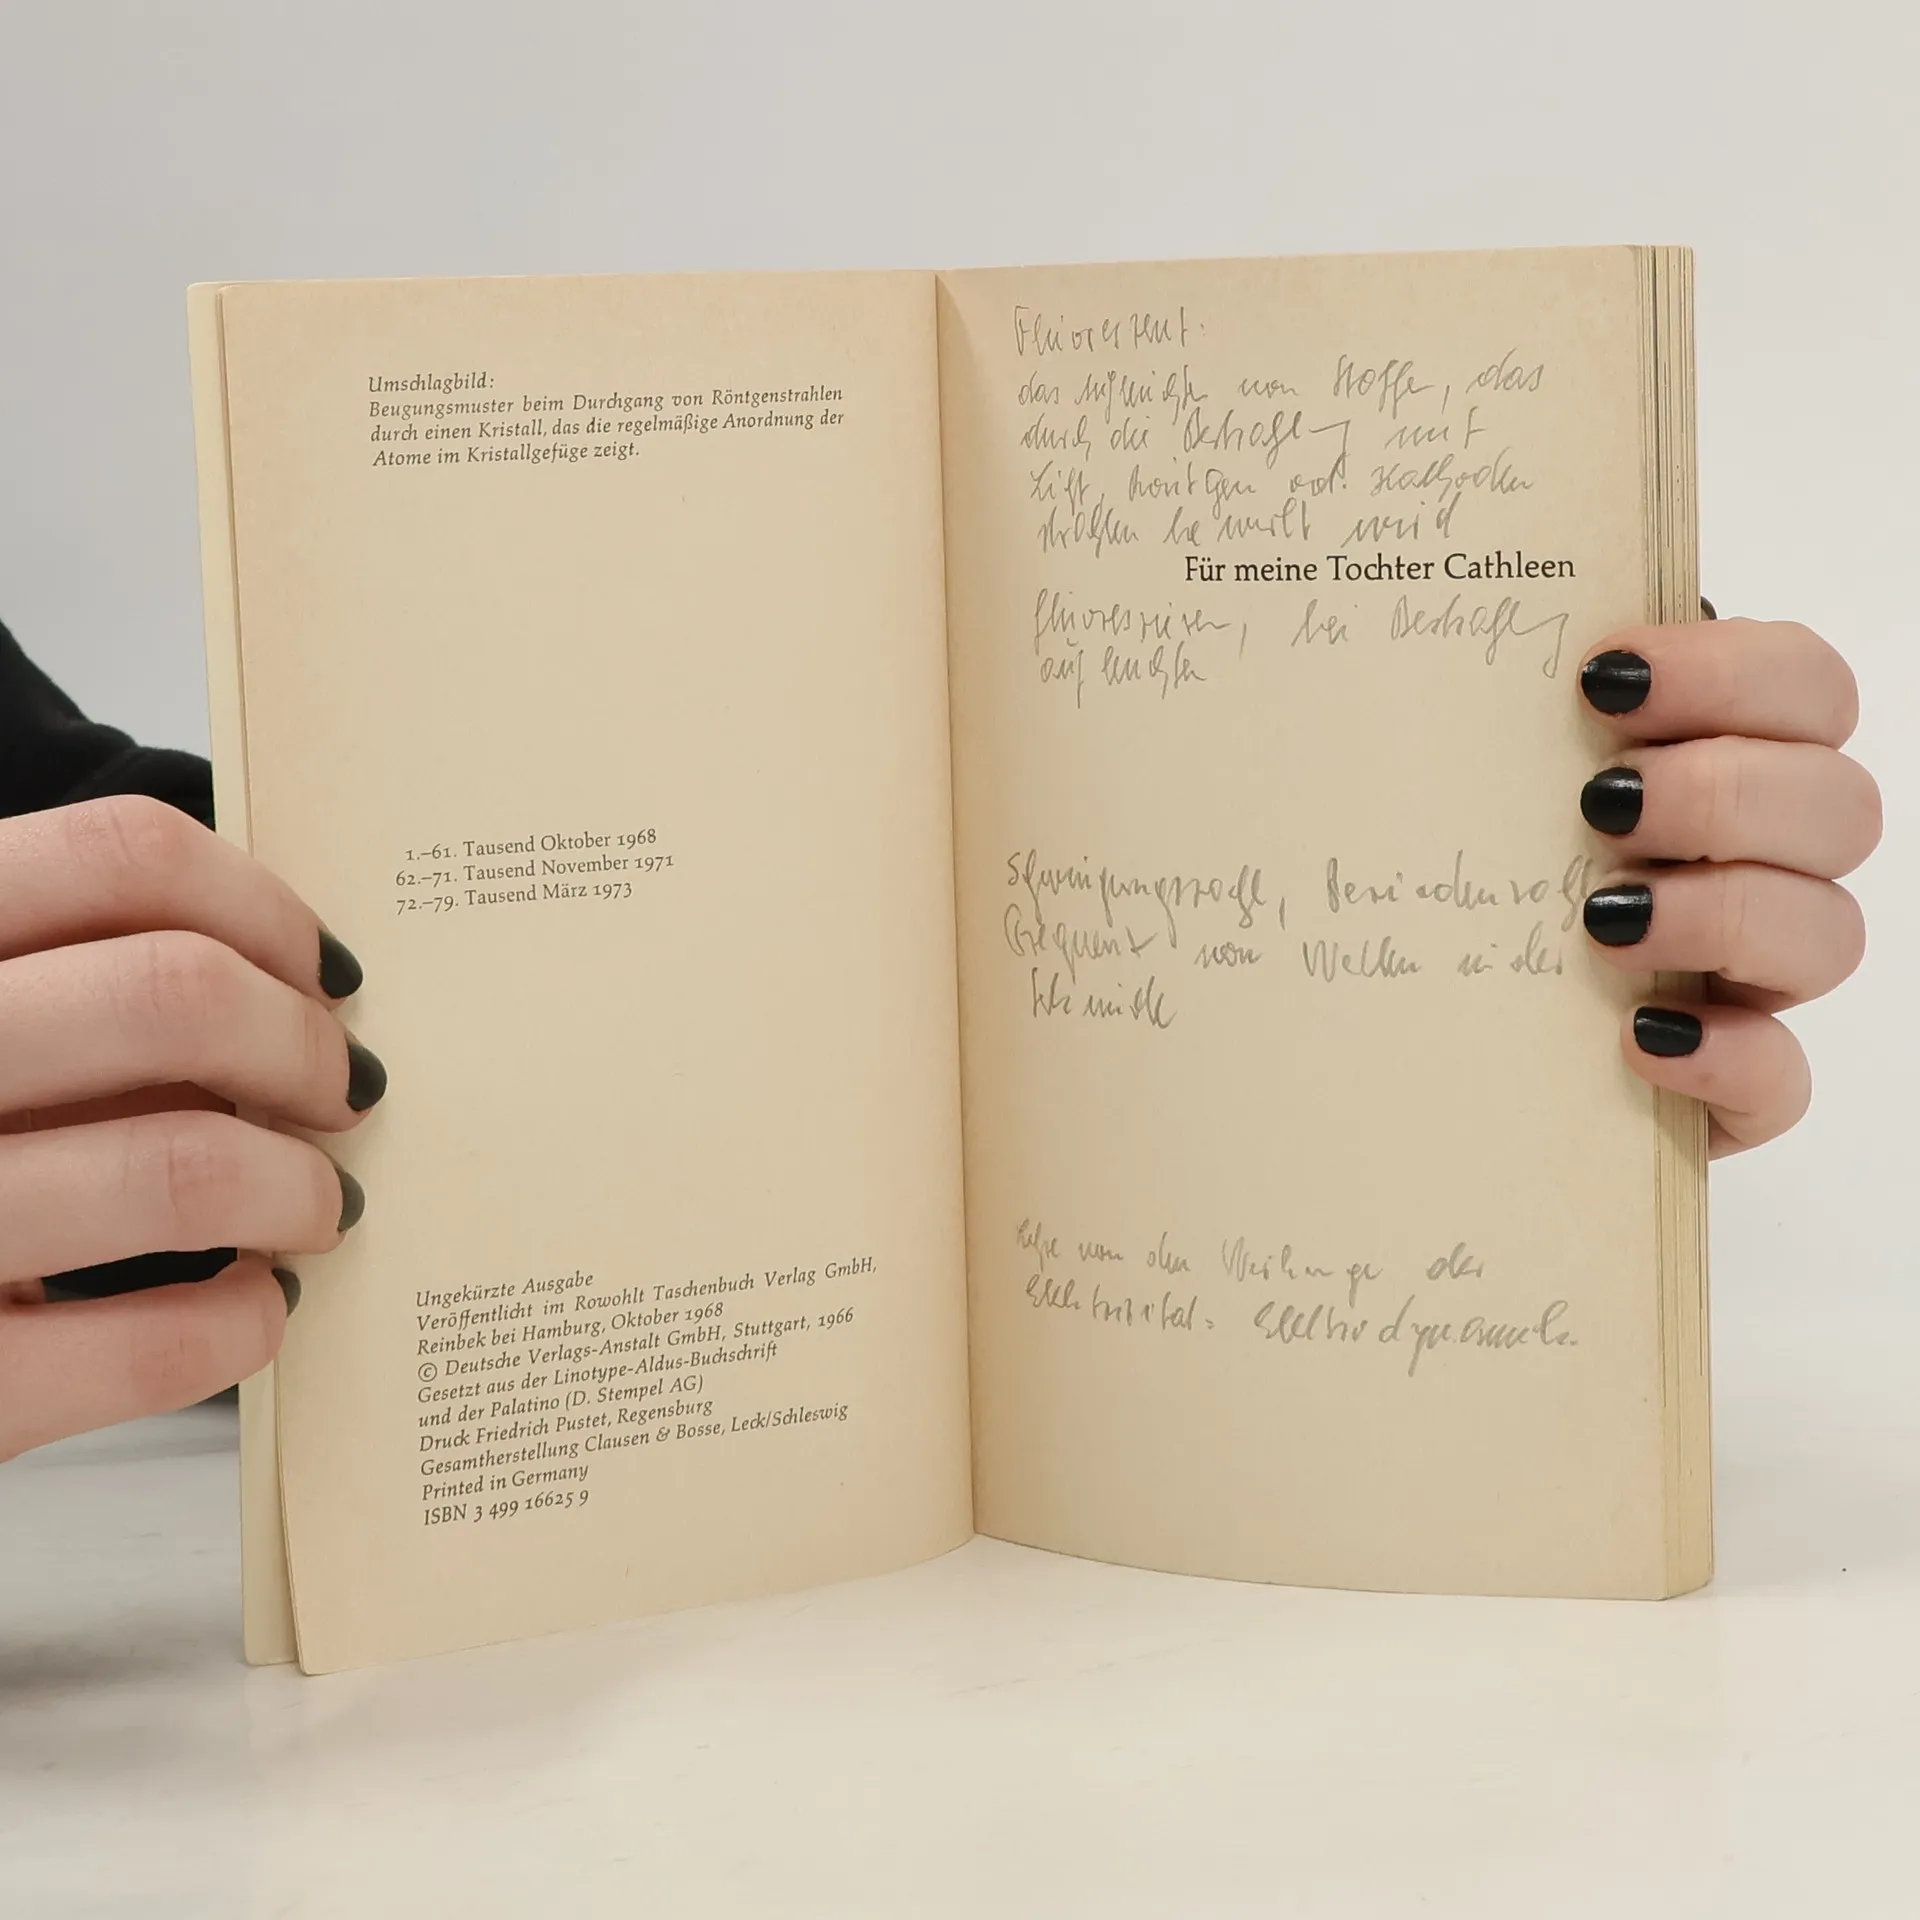 Umschlagbild:
Beugungsmuster beim Durchgang von Röntgenstrahlen
durch einen Kristall, das die regelmäßige Anordnung der
Atome im Kristallgefüge zeigt.
1.–61. Tausend Oktober 1968
62.–71. Tausend November 1971
72.–79. Tausend März 1973
Ungekürzte Ausgabe
Veröffentlicht im Rowohlt Taschenbuch Verlag GmbH,
Reinbek bei Hamburg, Oktober 1968
© Deutsche Verlags-Anstalt GmbH, Stuttgart, 1966
Gesetzt aus der Linotype-Aldus-Buchschrift
und der Palatino (D. Stempel AG)
Druck Friedrich Pustet, Regensburg
Gesamtherstellung Clausen & Bosse, Leck/Schleswig
Printed in Germany
ISBN 3 499 16625 9
das von Stoffe, das
durch die Bestrahlung mit
Licht, Röntgen od. Kathoden
strahlen bewirkt wird
Für meine Tochter Cathleen
fluoreszieren, bei Bestrahlung
aufleuchten
Schwingungszahl, Periodenzahl
Frequenz von Wellen in der
Sekunde
Lehre von den der
Elektrizität = Elektrodynamik.